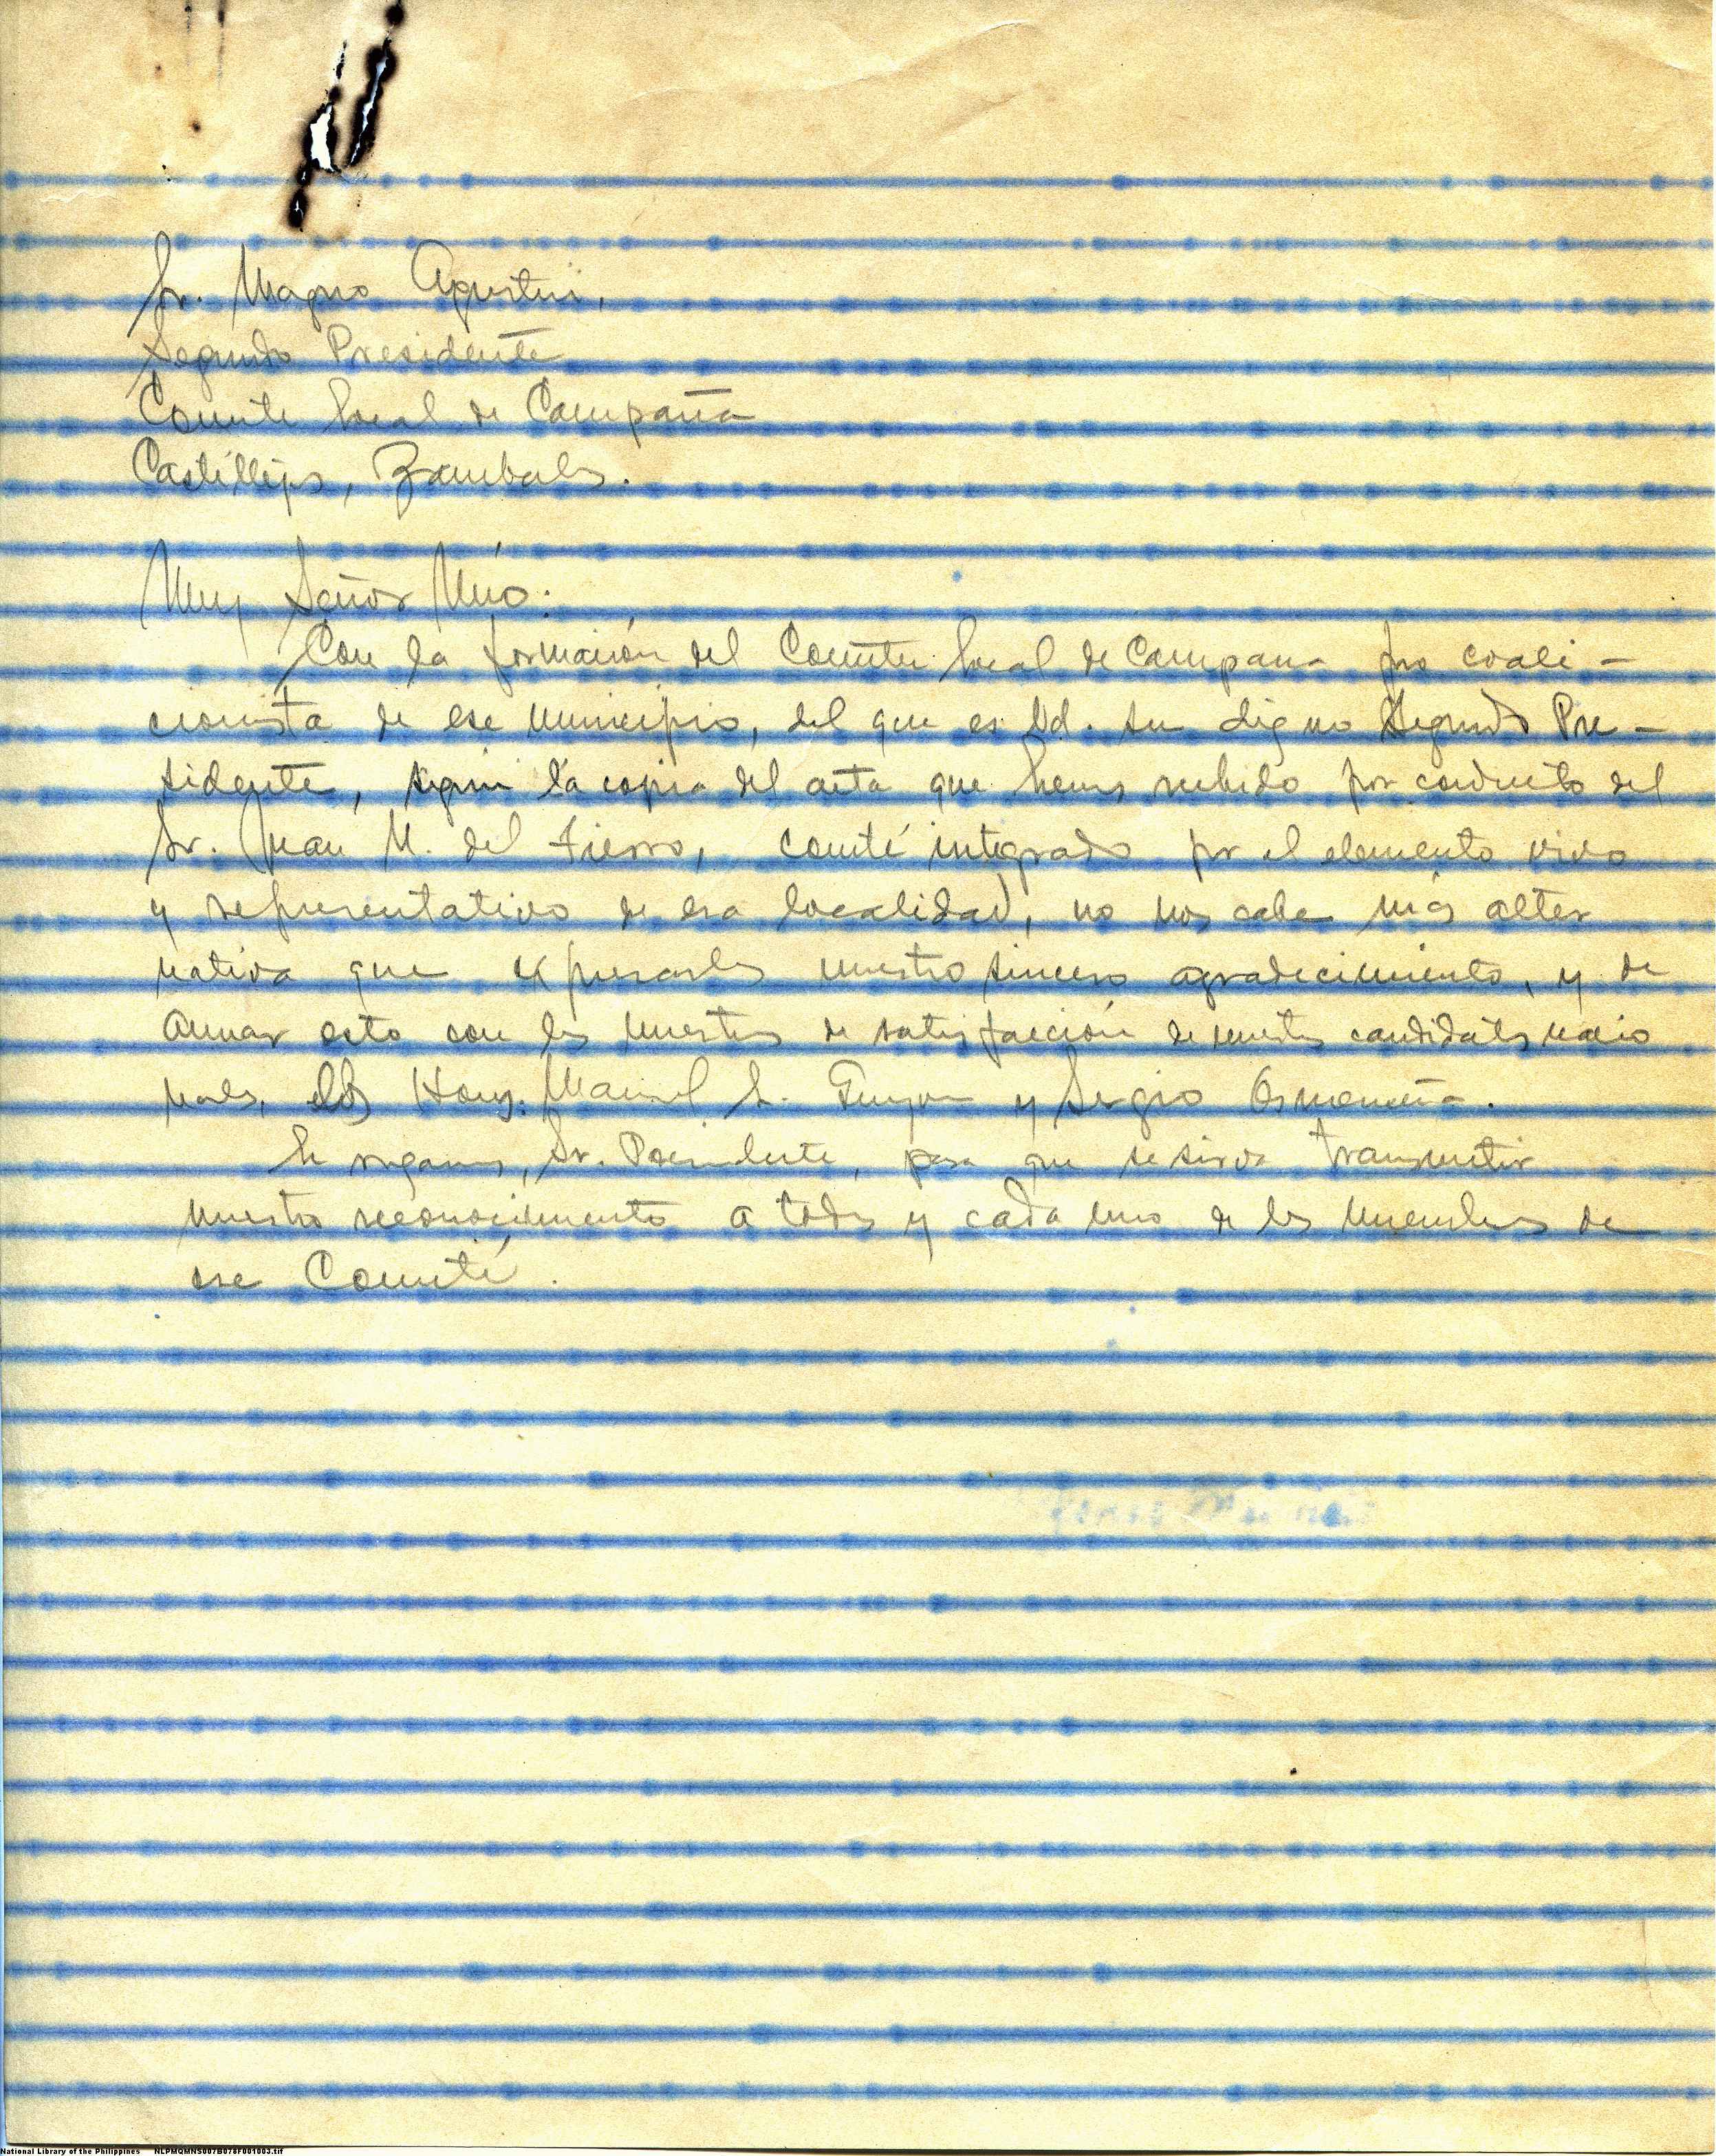 Sr. Magno Agustin,
Segundo Presidente
Comite local de Campaña
Castillejos, Zambales.
Muy Señor Mío:
Con la formación del Comite local de Campaña pro coali-
cionista de ese municipio, del que es Ud. su digno Segundo Pre-
sidente, según la copia del acta que hemos recibido por conducto del
Sr. Juan M. del Fierro, comité integrado por el elemento vivo
y representativo de esa localidad, no nos cabe más alter
nativa que expresarles nuestro sincero agradecimiento, y de
aunar esto con las muestras de satisfacción de nuestros candidatos nacio
nales, Hons. Manuel L. Quezon y Sergio Osmeña.
Le rogamos, Sr. Presidente, para que se sirva transmitir
nuestro reconocimiento a todos y cada uno de los miembros de
ese Comité.
National Library of the Philippines NLPMQMNS007B078F001003.tif